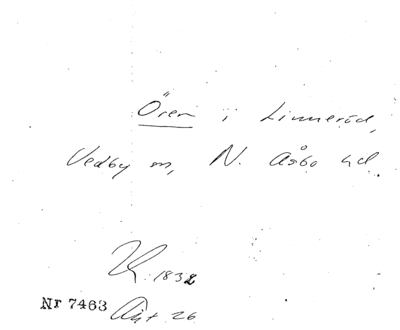 Ören i Linneröd,
Vedby sn, N. Åsbo hd.
K. 1832
Nr 7463 Akt 26